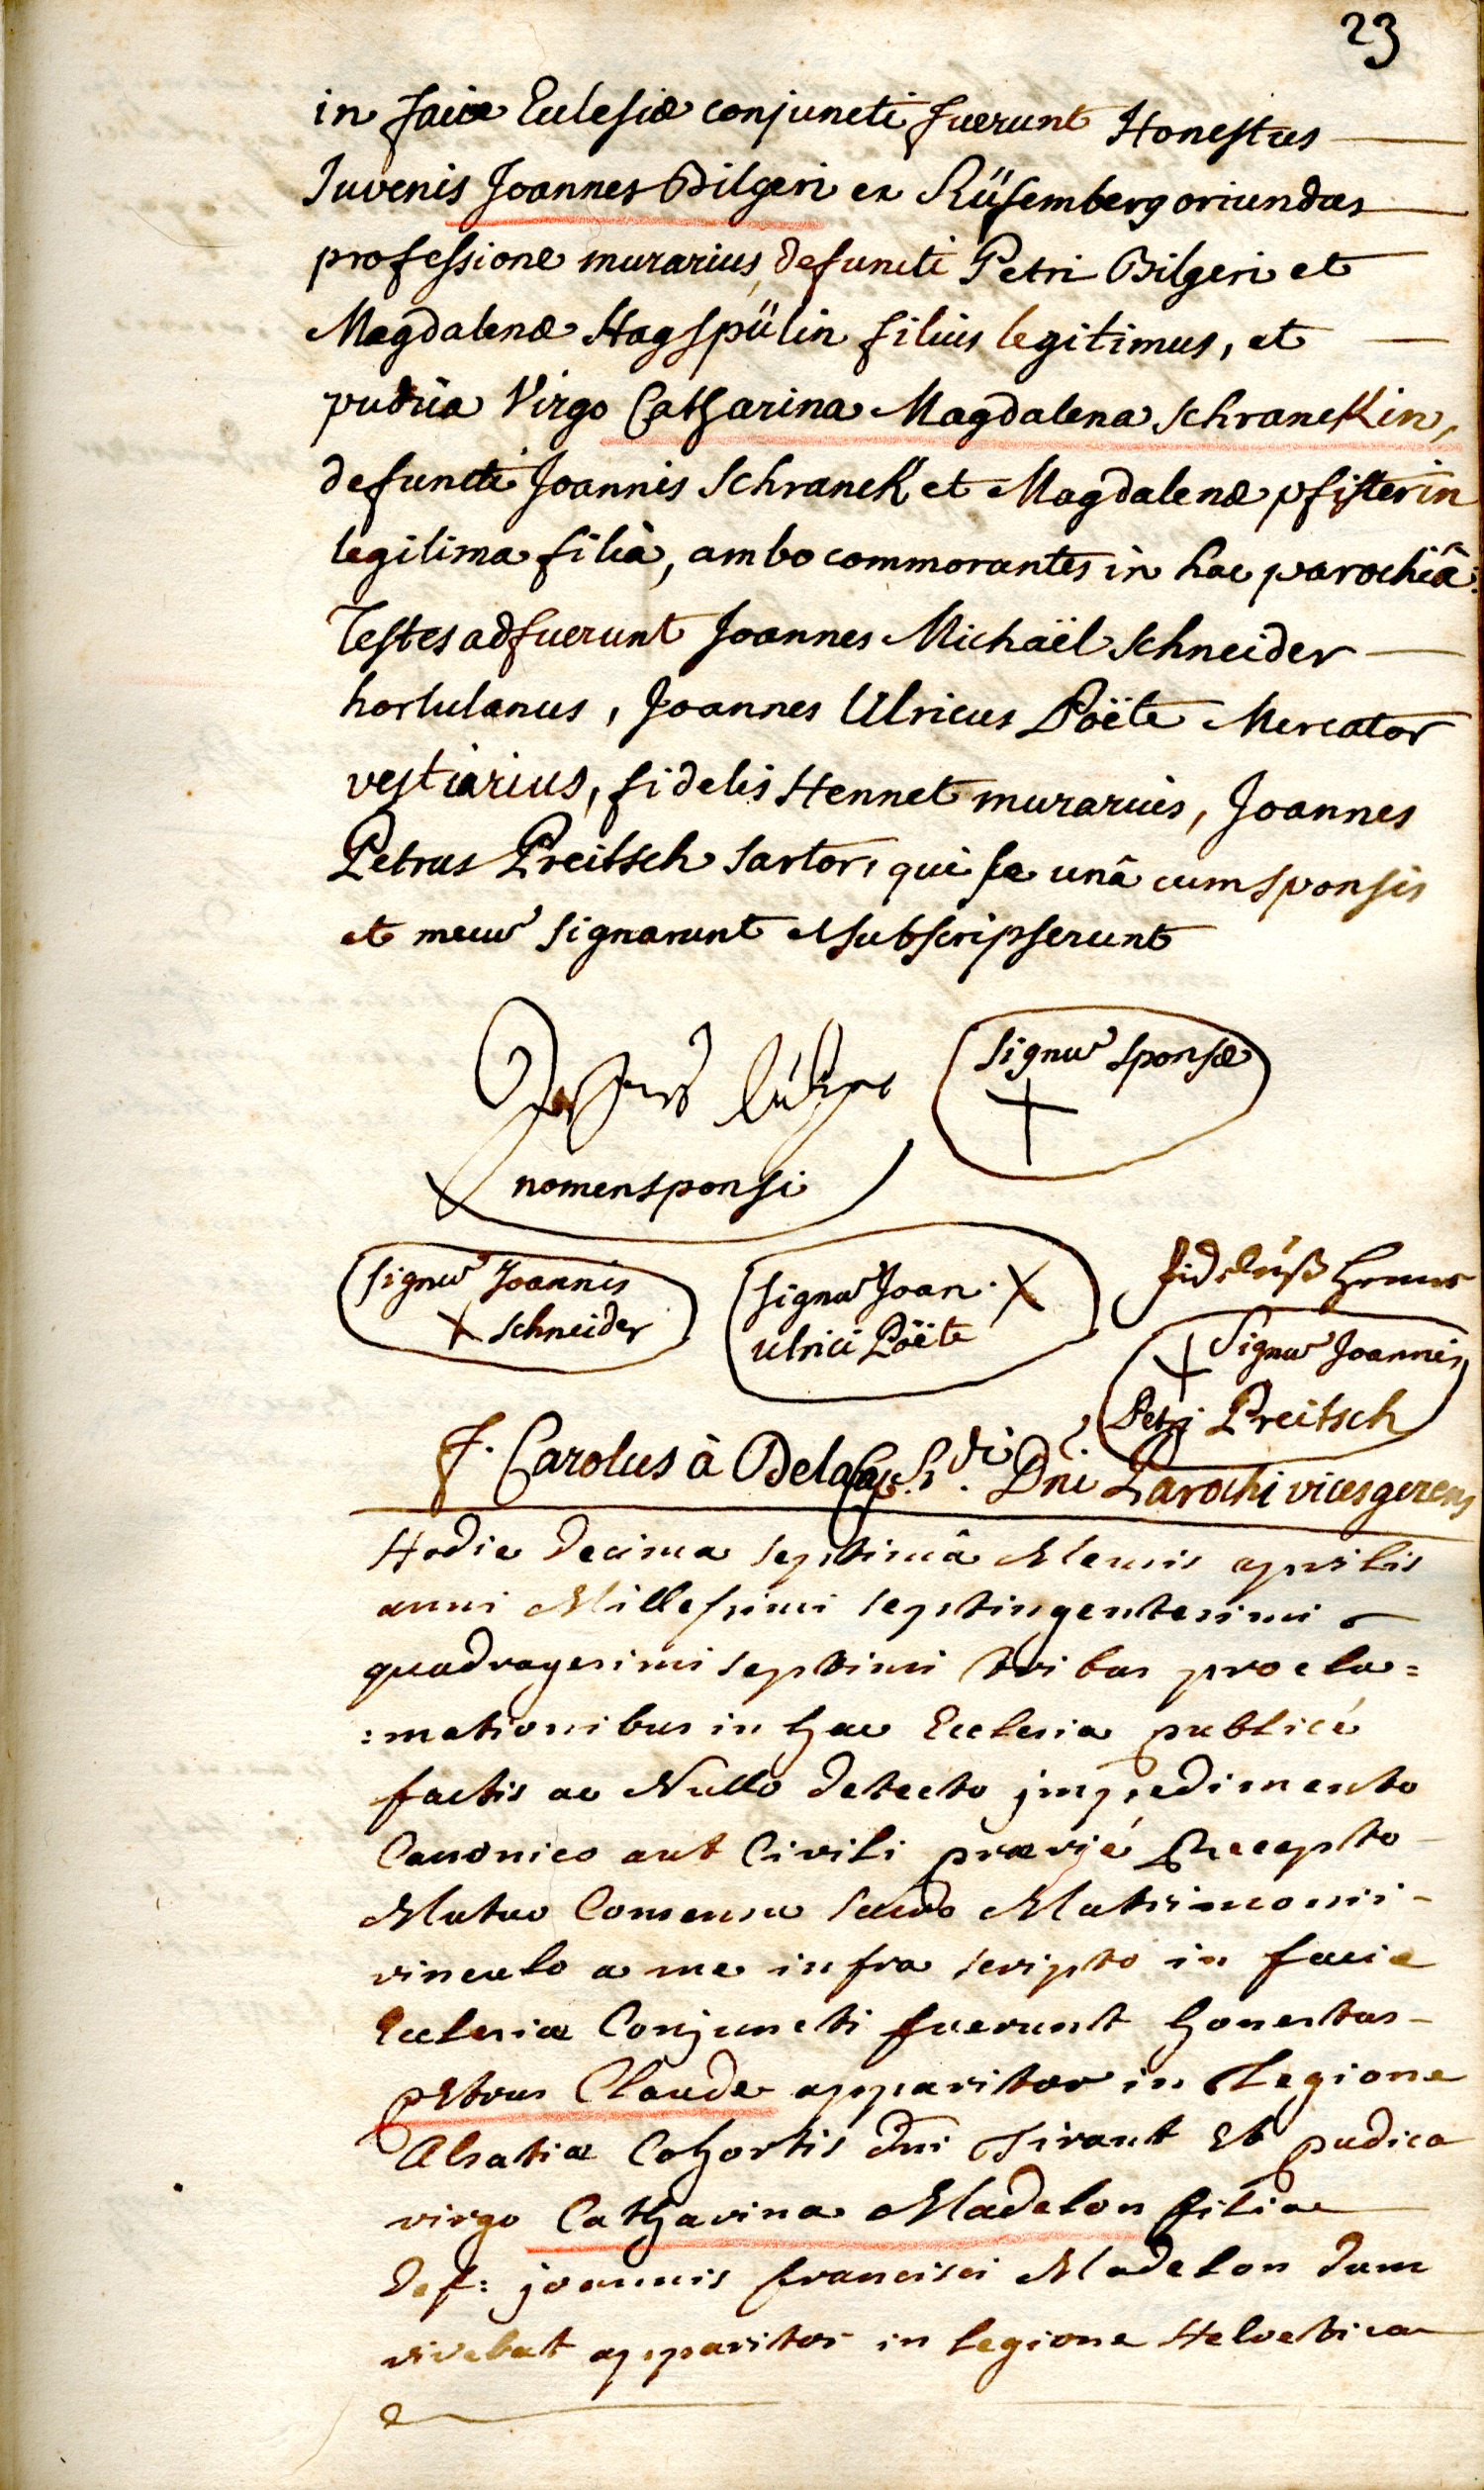 23
in faciæ Ecclesiæ conjuncti fuerunt Honestus
Iuvenis Joannes Bilgeri ex Rüsemberg oriundus
professione murarius, defuncti Petri Bilgeri et
Magdalenæ Hagspülin filius legitimus, et
pudica Virgo Catharina Magdalena Schranckin,
defuncti Joannis Schranck et Magdalenæ pfisterin
legitima filia, ambo commorantes in hac parochiâ:
Testes adfuerunt Joannes Michaël Schneider
hortulanus, Joannes Ulricus Poëte Mercator
vestiarius, fidelis Hennet murarius, Joannes
Petrus Preitsch Sartor, qui se unâ cum sponsis
et mecu signarunt et subscripserunt
signu sponsæ
nomen sponsi
signu Joannis
Schneider
signu Joan.
Ulrici Poëte
Signu Joannis
Petri Preitsch
f. Carolus à Dni Parochi vices gerens
Hodie Decima septimâ Mensis aprilis
anni Millesimi septingentesimi
quadragesimi septimi tribus procla=
:mationibus in hac Ecclesia publicé
factis ac Nullo detecto impedimento
Canonico aut Civili prævié Recepto
Mutuo Consensu sacro Matrimonii
vinculo a me infra scripto in facie
Ecclesiæ Conjuncti fuerunt honestus
petrus Claude apparitor in Legione
Alsatiæ Cohortis dni Tirant Et pudica
virgo Catharina Madelon filia
Def: joannis francisci Madelon dum
vivebat apparitor in legione Helvetica